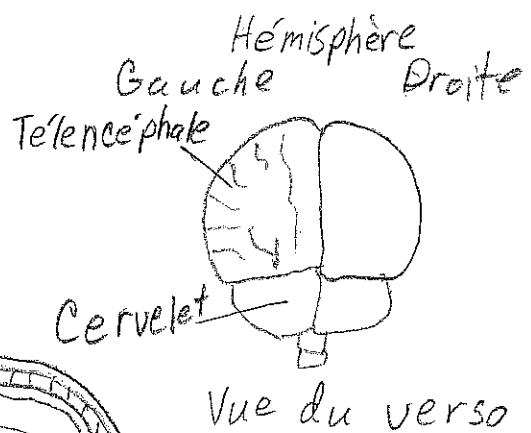 Hémisphère
Gauche Droite
Télencéphale
Cervelet
Vue du verso